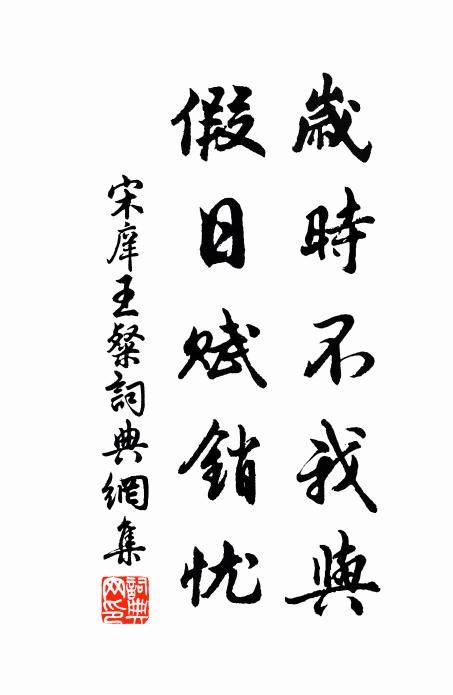 歲時不我與
假日賦銷忧
宋庠王粲詞典網集
詞典網印